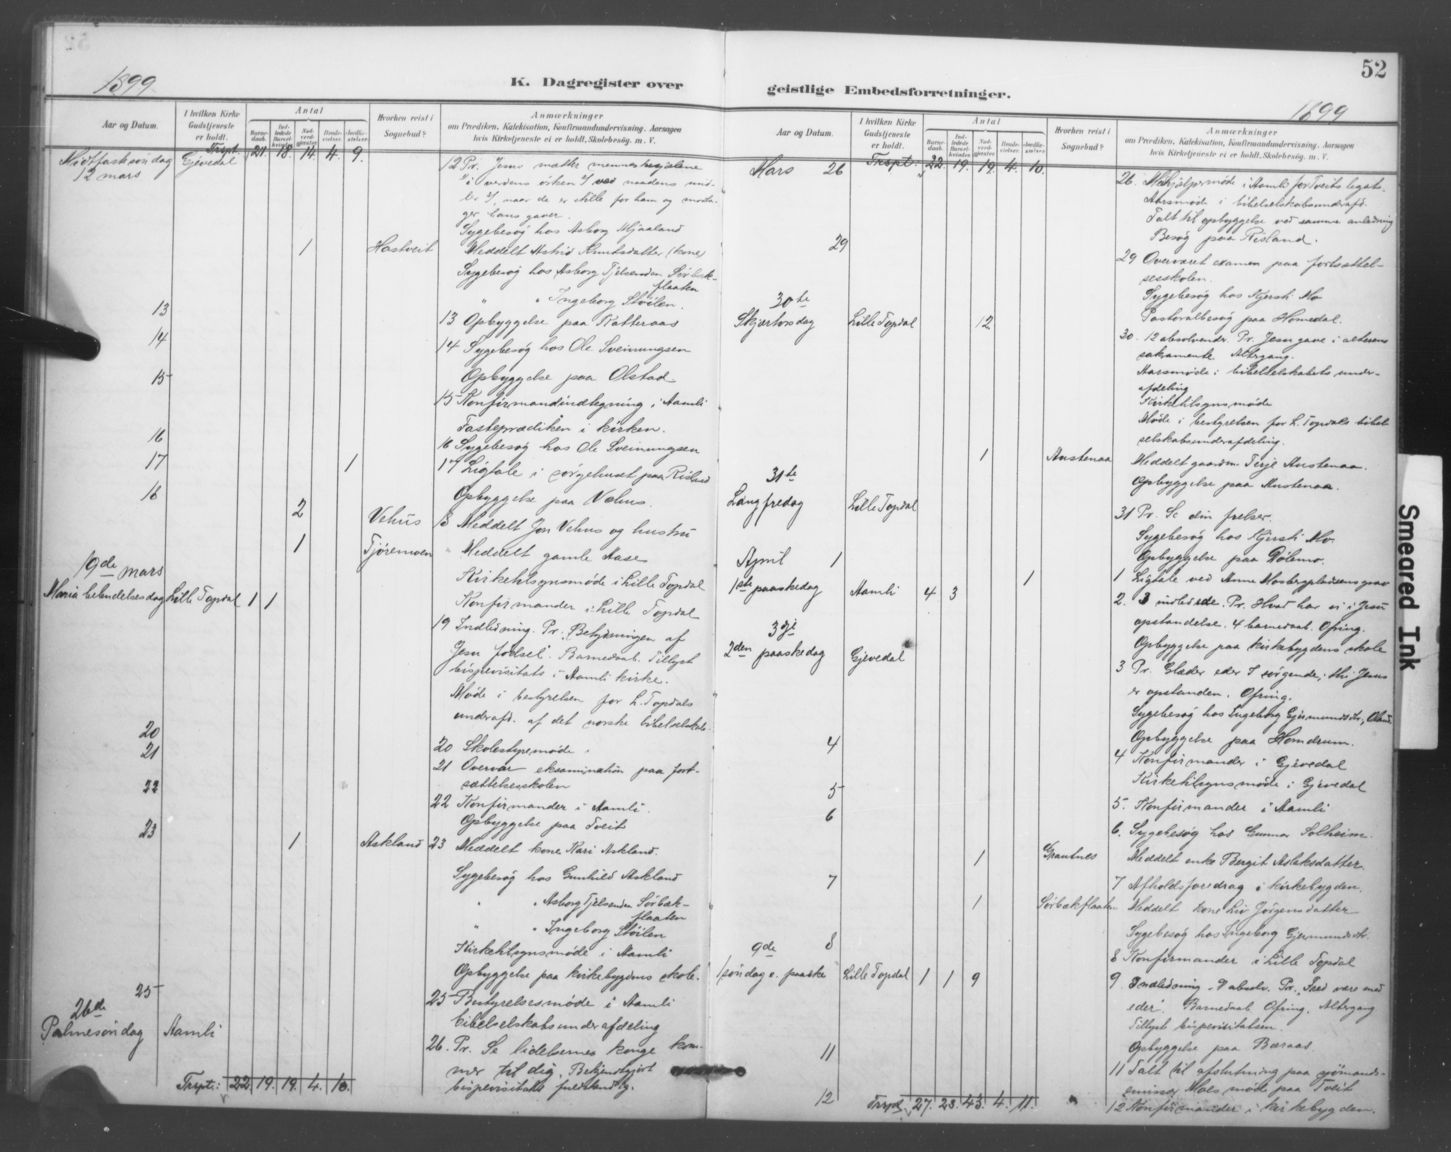 52
1899
1899
K. Dagregister over
geistlige Embedsforretninger.
Aar og Datum.
I hvilken Kirke Gudstjeneste er holdt.
Antal
Hvorhen reist i Sognebud?
Anmærkninger
om Prædiken, Katekisation, Konfirmandundervisning. Aarsagen
hvis Kirketjeneste ei er holdt, Skolebesøg, m. V.
Midtfastesøndag Gjevedal Trspt. 21. 18. 14. 4. 9.
12 mars
12 Pr. Jesus mætter menneskesjælene
i verdens ørken ved naadens
naar de er stille for ham og
hans gaver.
Sygebesøg hos Asborg Mjaaland
1 Hastveit Meddelt Astrid Knutsdatter (kone)
Sygebesøg hos Asborg Tjelsendm Sørbøk-
flaaten
" " Ingeborg Støilen.
13 13 Opbyggelse paa Katteraas
14 14 Sygebesøg hos Ole Sveinungsen
Opbyggelse paa Olstad
15 15 Konfirmandindtegning i Aamli
Fasteprædiken i kirken.
16 16 Sygebesøg hos Ole Sveinungsen
17 1 17 Ligtale i sørgehuset paa Risland
Opbyggelse paa Vehus.
18 2 Vehus 18 Meddelt Jon Vehus og hustru
1 Tjøremoen " Meddelt gamle Aase
Kirketilsynsmøde i Lille Topdal
Konfirmander i Lille Topdal
19de mars
Mariæ bebudelsesdag Lille Topdal 1 1
19 Indledning. Pr. Betydningen af
Jesu fødsel. Barnedaab. Tillyst
bispevisitats i Aamli kirke.
Møde i bestyrelsen for L. Topdals
underafd. af det norske bibelselskab.
20 20 Skolestyremøde.
21 21 Overvar eksamination paa fort-
sættelsesskolen
22 22 Konfirmander i Aamli.
Opbyggelse paa Tveit
23 1 Askland 23 Meddelt kone Kari Askland.
Sygebesøg hos Gunhild Askland
" Asborg Tjelsendm Sørbøk-
flaaten
" " Ingeborg Støilen
Kirketilsynsmøde i Aamli
Opbyggelse paa kirkebygdens skole.
25 25 Bestyrelsesmøde i Aamli
bibelselskabsunderafdeling
26de
Palmesøndag Aamli
26. Pr. Se lidelsernes konge kom-
mer til dig. Bekjendtgjort
bispevisitats
Trspt: 22 19. 19. 4. 10.
Aar og Datum.
I hvilken Kirke Gudstjeneste er holdt.
Antal
Hvorhen reist i Sognebud?
Anmærkninger
om Prædiken, Katekisation, Konfirmandundervisning. Aarsagen
hvis Kirketjeneste ei er holdt, Skolebesøg, m. V.
Mars 26 Trspt. 22. 19. 19. 4. 10.
26. i Aamli for Tveits legat.
Aarsmøde i bibelselskabsunderafd.
Talt til opbyggelse ved samme anledning
Besøg paa Risland.
29 29 Overværet examen paa fortsættel-
sesskolen.
Sygebesøg hos Kjersti Mo
Pastoralbesøg paa Homedal.
30te
Skjærtorsdag Lille Topdal 12
30. 12 absolvender. Pr. Jesu gave i alterens
sakramente. Altergang.
Aarsmøde i bibelselskabets under-
afdeling
Kirketilsynsmøde
Møde i bestyrelsen for L. Topdals bibel-
selskabsunderafdeling.
1 Austenaa Meddelt gaardm. Terje Austenaa.
Opbyggelse paa Austenaa.
31te
Langfredag Lille Topdal
31 Pr. Se din frelser.
Sygebesøg hos Kjersti Mo.
Opbyggelse paa Dølemo.
April 1 1 1 Ligtale ved Anne grav
1ste paaskedag Aamli 4 3
2. 3 indledede. Pr. Hvad har vi i Jesu
opstandelse. 4 barnedaab. Ofring.
Opbyggelse paa kirkebygdens skole
3die
2den paaskedag Gjevedal
3 Pr. Glæder eder I sørgende, thi Jesus
er opstanden. Ofring.
Sygebesøg hos Ingeborg Gjermundsdtr,
Opbyggelse paa Homdrum.
4 4 Konfirmander i Gjevedal
Kirketilsynsmøde i Gjevedal
5 5. Konfirmander i Aamli
6 6. Sygebesøg hos Gunnar Solheim.
1 Grautnes Meddelt enke Bergit Aslaksdatter
7 7 Afholdsforedrag i kirkebygden.
1 Sørbøkflaaten Meddelt kone Liv Jørgensdatter
Sygebesøg hos Ingeborg Gjermundsdtr.
8 8 Konfirmander i Lille Topdal
9de
1 søndag e. paaske Lille Topdal 1 1 9
9. Indledning. 9 absolv. Pr. Fred være med
eder. Barnedaab. Ofring. Altergang
Tillyst bispevisitatsen.
Opbyggelse paa Baraas.
11 11 Talt til afslutning paa
møde paa Tveit
12 12 Konfirmander i kirkebygden.
Trspt. 27. 23. 43. 4. 11.
Smeared Ink